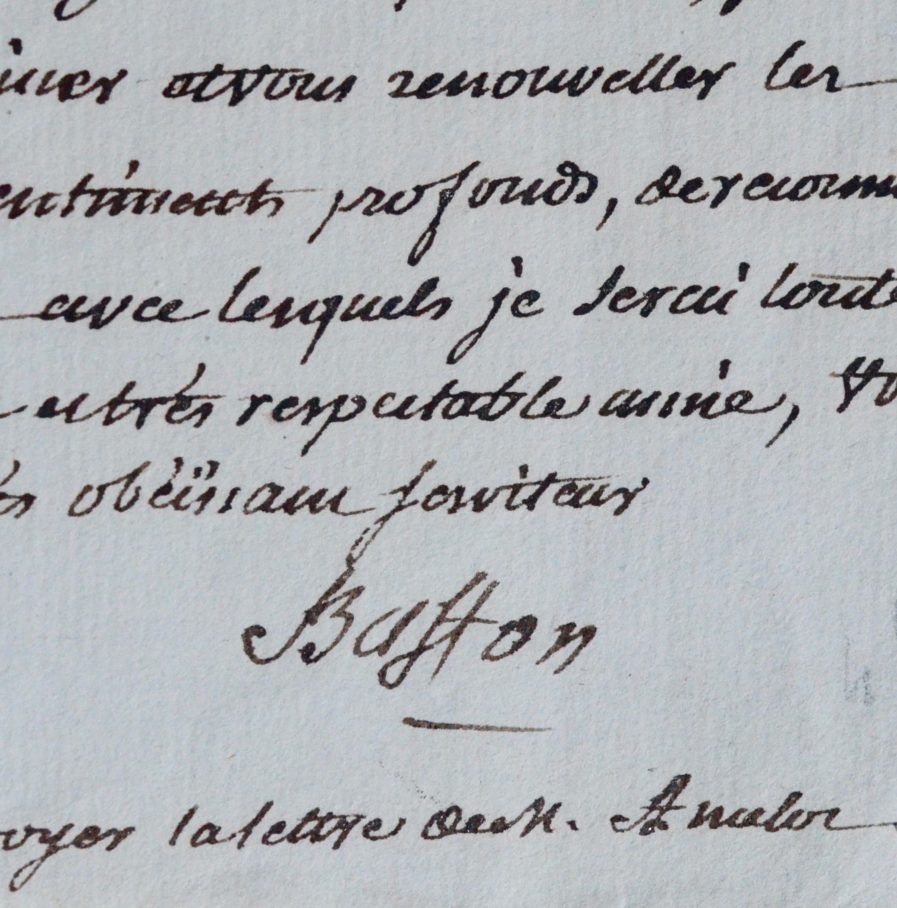 et vous renouveller les
profonds, de reconn
avec lesquels je serai toute
respectable amie,
obéissant serviteur
Baston
oyer la lettre de M. Amelot